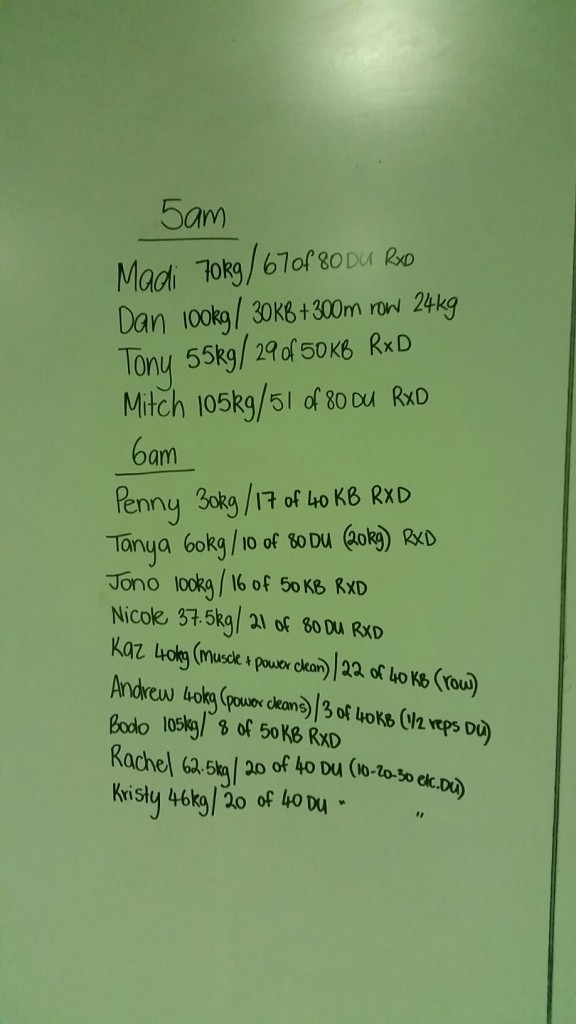 5am
Madi 70kg/67 of 80 DU RxD
Dan 100kg/ 30KB+300m row 24kg
Tony 55kg/ 29 of 50 KB RxD
Mitch 105kg/51 of 80 DU RxD
6am
Penny 30kg/17 of 40 KB RXD
Tanya 60kg/10 of 80 DU (20kg) RXD
Jono 100kg/16 of 50 KB RXD
Nicole 37.5kg/ 21 of 80 DU RXD
Kaz 40kg (muscle + power clean)/22 of 40 KB (row)
Andrew 40kg (power cleans)/3 of 40KB (1/2 reps DU)
Bodo 105kg/ 8 of 50 KB RXD
Rachel 62.5kg/ 20 of 40 DU (10-20-30 etc. DU)
Kristy 46kg/ 20 of 40 DU " "